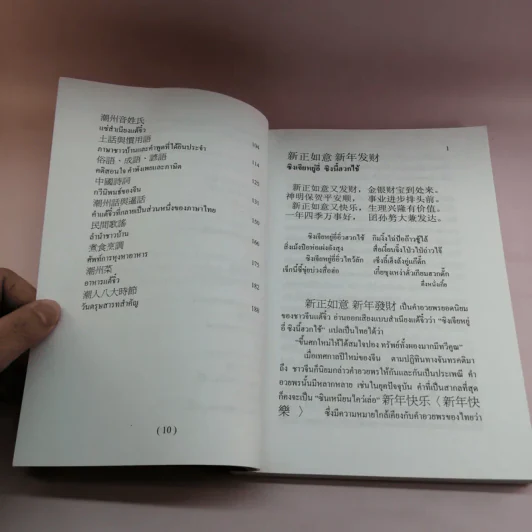 潮州音姓氏
แซ่สำเนียงแต้จิ๋ว
土話與慣用語
ภาษาชาวบ้านและคำพูดที่ใช้กันประจำ
俗語·成語·諺語 114
คติสอนใจ คำพังเพยและภาษิต
中國詩詞 125
กวีนิพนธ์ของจีน
潮州話與暹語 131
คำแต้จิ๋วที่กลายเป็นส่วนหนึ่งของภาษาไทย
民間歌謠 150
ลำนำชาวบ้าน
煮食烹調
ศัพท์การหุงหาอาหาร
潮州菜 175
อาหารแต้จิ๋ว
潮人八大時節 182
วันตรุษสารทสำคัญ 188
( 10 )
1
新正如意 新年发财
ซิงเจียหยู่อี่ ซิงนี้ฮวกไช้
新正如意又发财， 金银财宝到处来。
神明保贺平安顺， 事业进步排头前。
新正如意又快乐， 生理兴隆有价值。
一年四季万事好， 团孙勢大兼发达。
ซิงเจียหยู่อี่อิ่วฮวกไช้
ซิงเจียหยู่อี่อิ่วไคว่ลัก
新正如意 新年發財 เป็นคำอวยพรยอดนิยม
ของชาวจีนแต้จิ๋ว อ่านออกเสียงแบบสำเนียงแต้จิ๋วว่า “ซิงเจียหยู่
อี่ ซิงนี้ฮวกไช้” แปลเป็นไทยได้ว่า
“ขึ้นศกใหม่ให้ได้สมใจปอง ทรัพย์ทั้งผองมากมีทวีคูณ”
เมื่อเทศกาลปีใหม่ของจีน ตามปฏิทินทางจันทรคติมา
ถึง ชาวจีนก็นิยมกล่าวคำอวยพรให้กันและกันเป็นประเพณี คำ
อวยพรนั้นมีหลากหลาย เช่นในยุคปัจจุบัน คำที่เป็นสากลที่สุด
ก็คงจะเป็น “ซินเหนียนไคว่เล่อ” 新年快乐〈新年快
樂 〉 ซึ่งมีความหมายใกล้เคียงกับคำอวยพรของไทยว่า